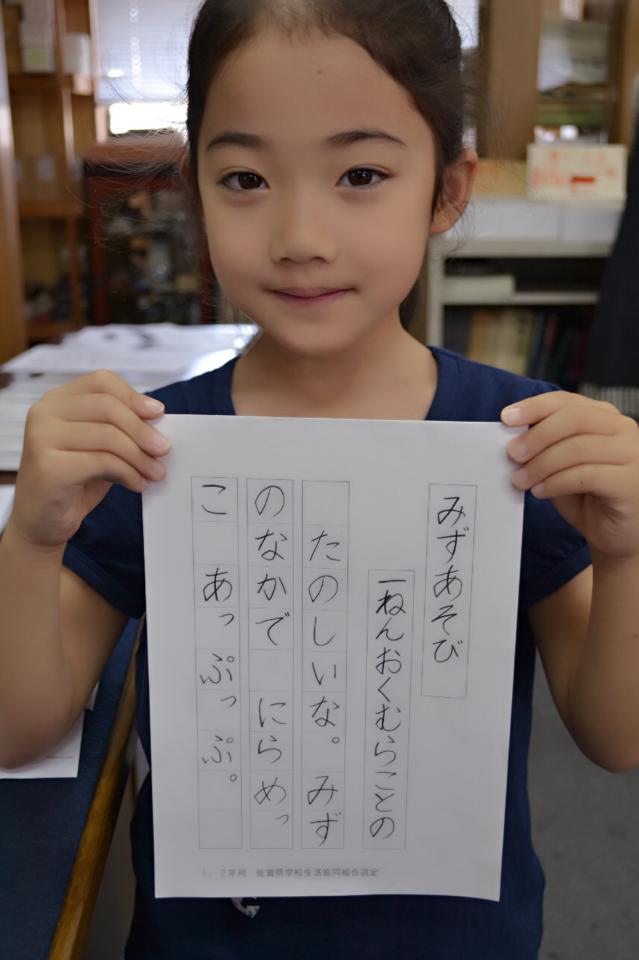 みずあそび
一ねんおくむらことの
たのしいな。みず
のなかで にらめっ
こ あっぷっぷ。
1、2年用 佐賀県学校生活協同組合選定